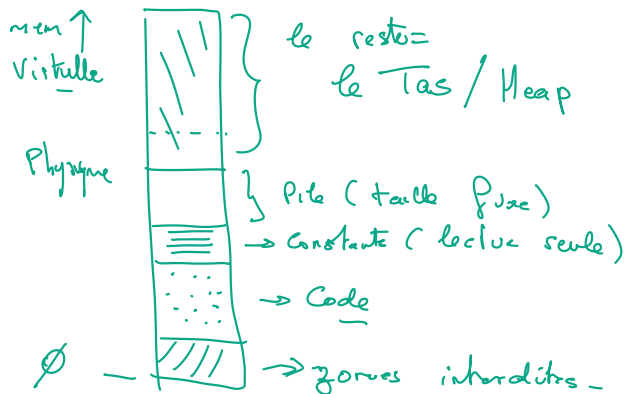 mem
Virtuelle
le reste=
le Tas / Heap
Physique
Pile ( taille fixe )
→ Constante ( lecture seule )
→ Code
∅
→ zones interdites